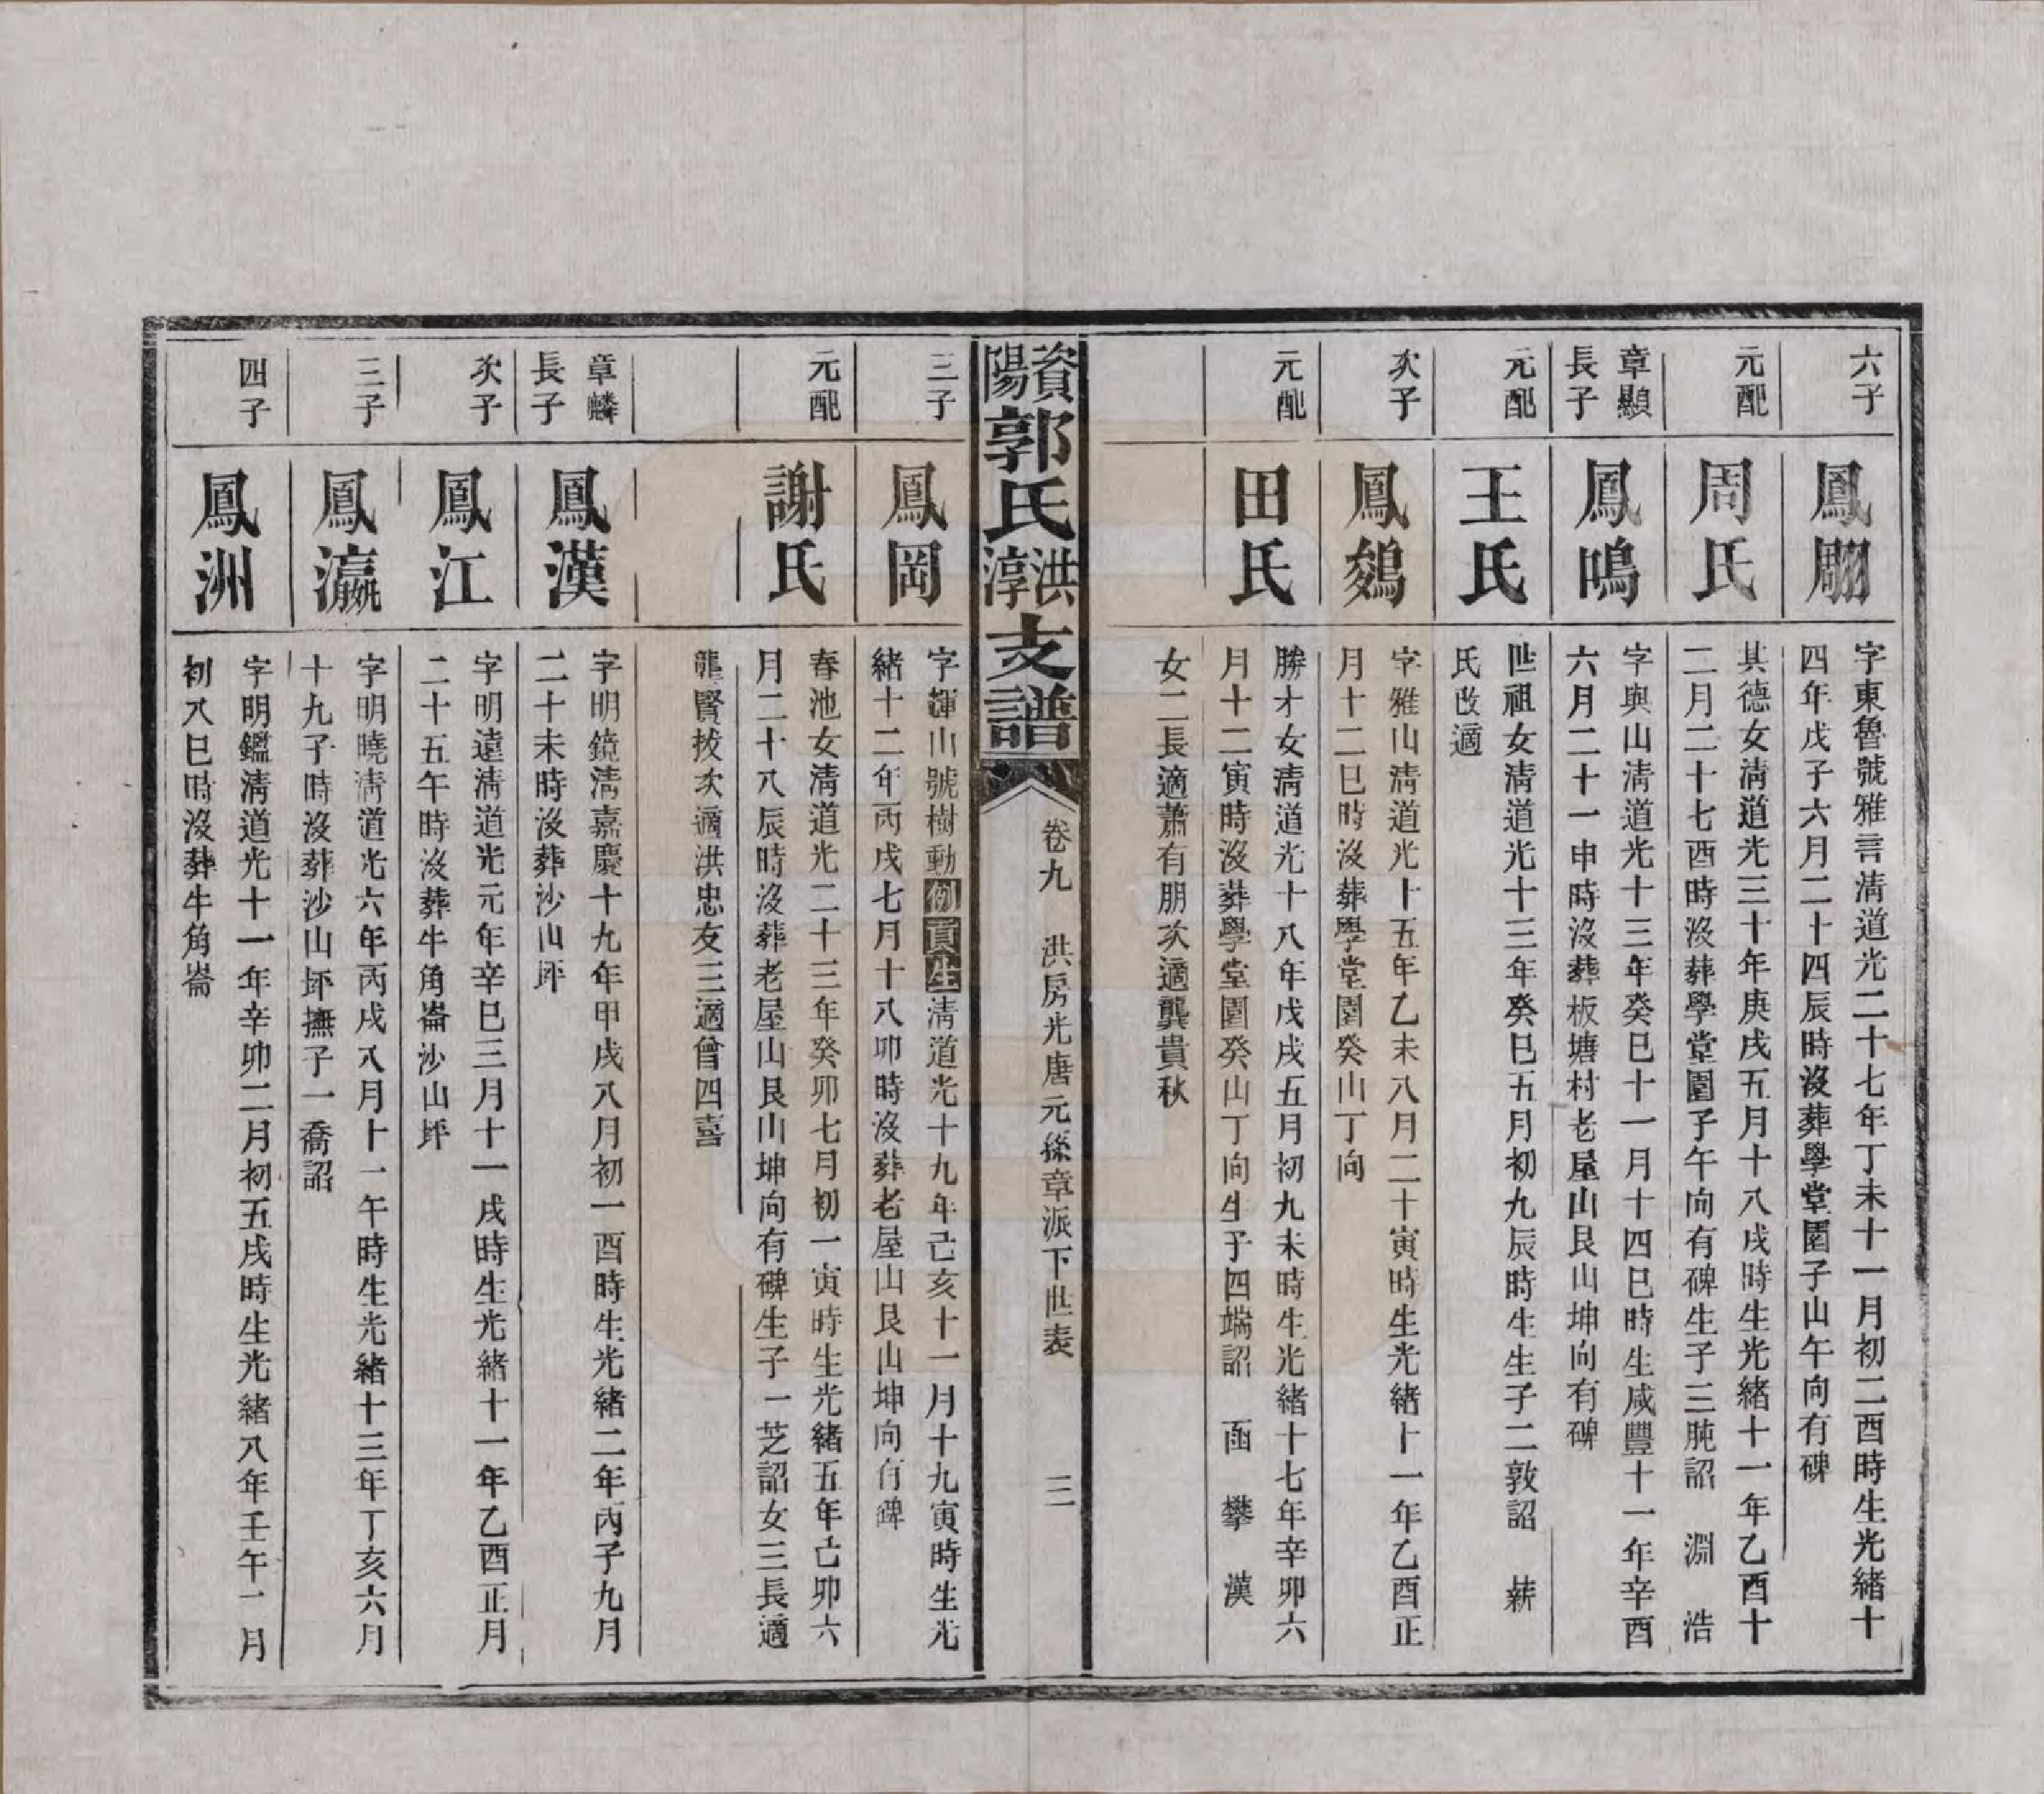 六子
鳳翽
字東魯號雅言淸道光二十七年丁未十一月初二酉時生光緒十
四年戊子六月二十四辰時沒葬學堂園子山午向有碑
元配
周氏
其德女淸道光三十年庚戌五月十八戌時生光緒十一年乙酉十
二月二十七酉時沒葬學堂園子午向有碑生子三肫詔 淵 浩
章顯
長子
鳳鳴
字與山淸道光十三年癸巳十一月十四巳時生咸豐十一年辛酉
六月二十一申時沒葬板塘村老屋山艮山坤向有碑
元配
王氏
世祖女淸道光十三年癸巳五月初九辰時生生子二敦詔 薪
氏改適
次子
鳳鵷
字雅山淸道光十五年乙未八月二十寅時生光緒十一年乙酉正
月十二巳時沒葬學堂園癸山丁向
元配
田氏
勝才女淸道光十八年戊戌五月初九未時生光緒十七年辛卯六
月十二寅時沒葬學堂園癸山丁向生子四端詔 酉 攀 漢
女二長適蕭有朋次適龔貴秋
資陽郭氏洪淳支譜
卷九 洪房光唐元孫章派下世表 三
三子
鳳岡
字輝山號樹勳例貢生淸道光十九年己亥十一月十九寅時生光
緒十二年丙戌七月十八卯時沒葬老屋山艮山坤向有碑
元配
謝氏
春池女淸道光二十三年癸卯七月初一寅時生光緒五年己卯六
月二十八辰時沒葬老屋山艮山坤向有碑生子一芝詔女三長適
龍賢拔次適洪忠友三適曾四喜
章麟
長子
鳳漢
字明鏡淸嘉慶十九年甲戌八月初一酉時生光緒二年丙子九月
二十未時沒葬沙山坪
次子
鳳江
字明遠淸道光元年辛巳三月十一戌時生光緒十一年乙酉正月
二十五午時沒葬牛角崙沙山坪
三子
鳳瀛
字明曉淸道光六年丙戌八月十一午時生光緒十三年丁亥六月
十九子時沒葬沙山坪撫子一喬詔
四子
鳳洲
字明鑑淸道光十一年辛卯二月初五戌時生光緒八年壬午二月
初八巳時沒葬牛角崙